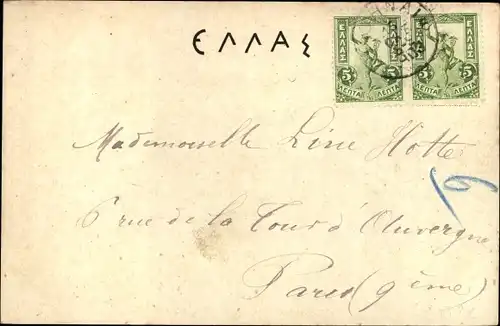 ΕΛΛΑΣ
ΕΛΛΑΣ
ΕΛΛΑΣ
5 ΛΕΠΤΑ 5
5 ΛΕΠΤΑ 5
Mademoiselle Line Hotte
6 rue de la Tour d'Auvergne
Paris (9ème)